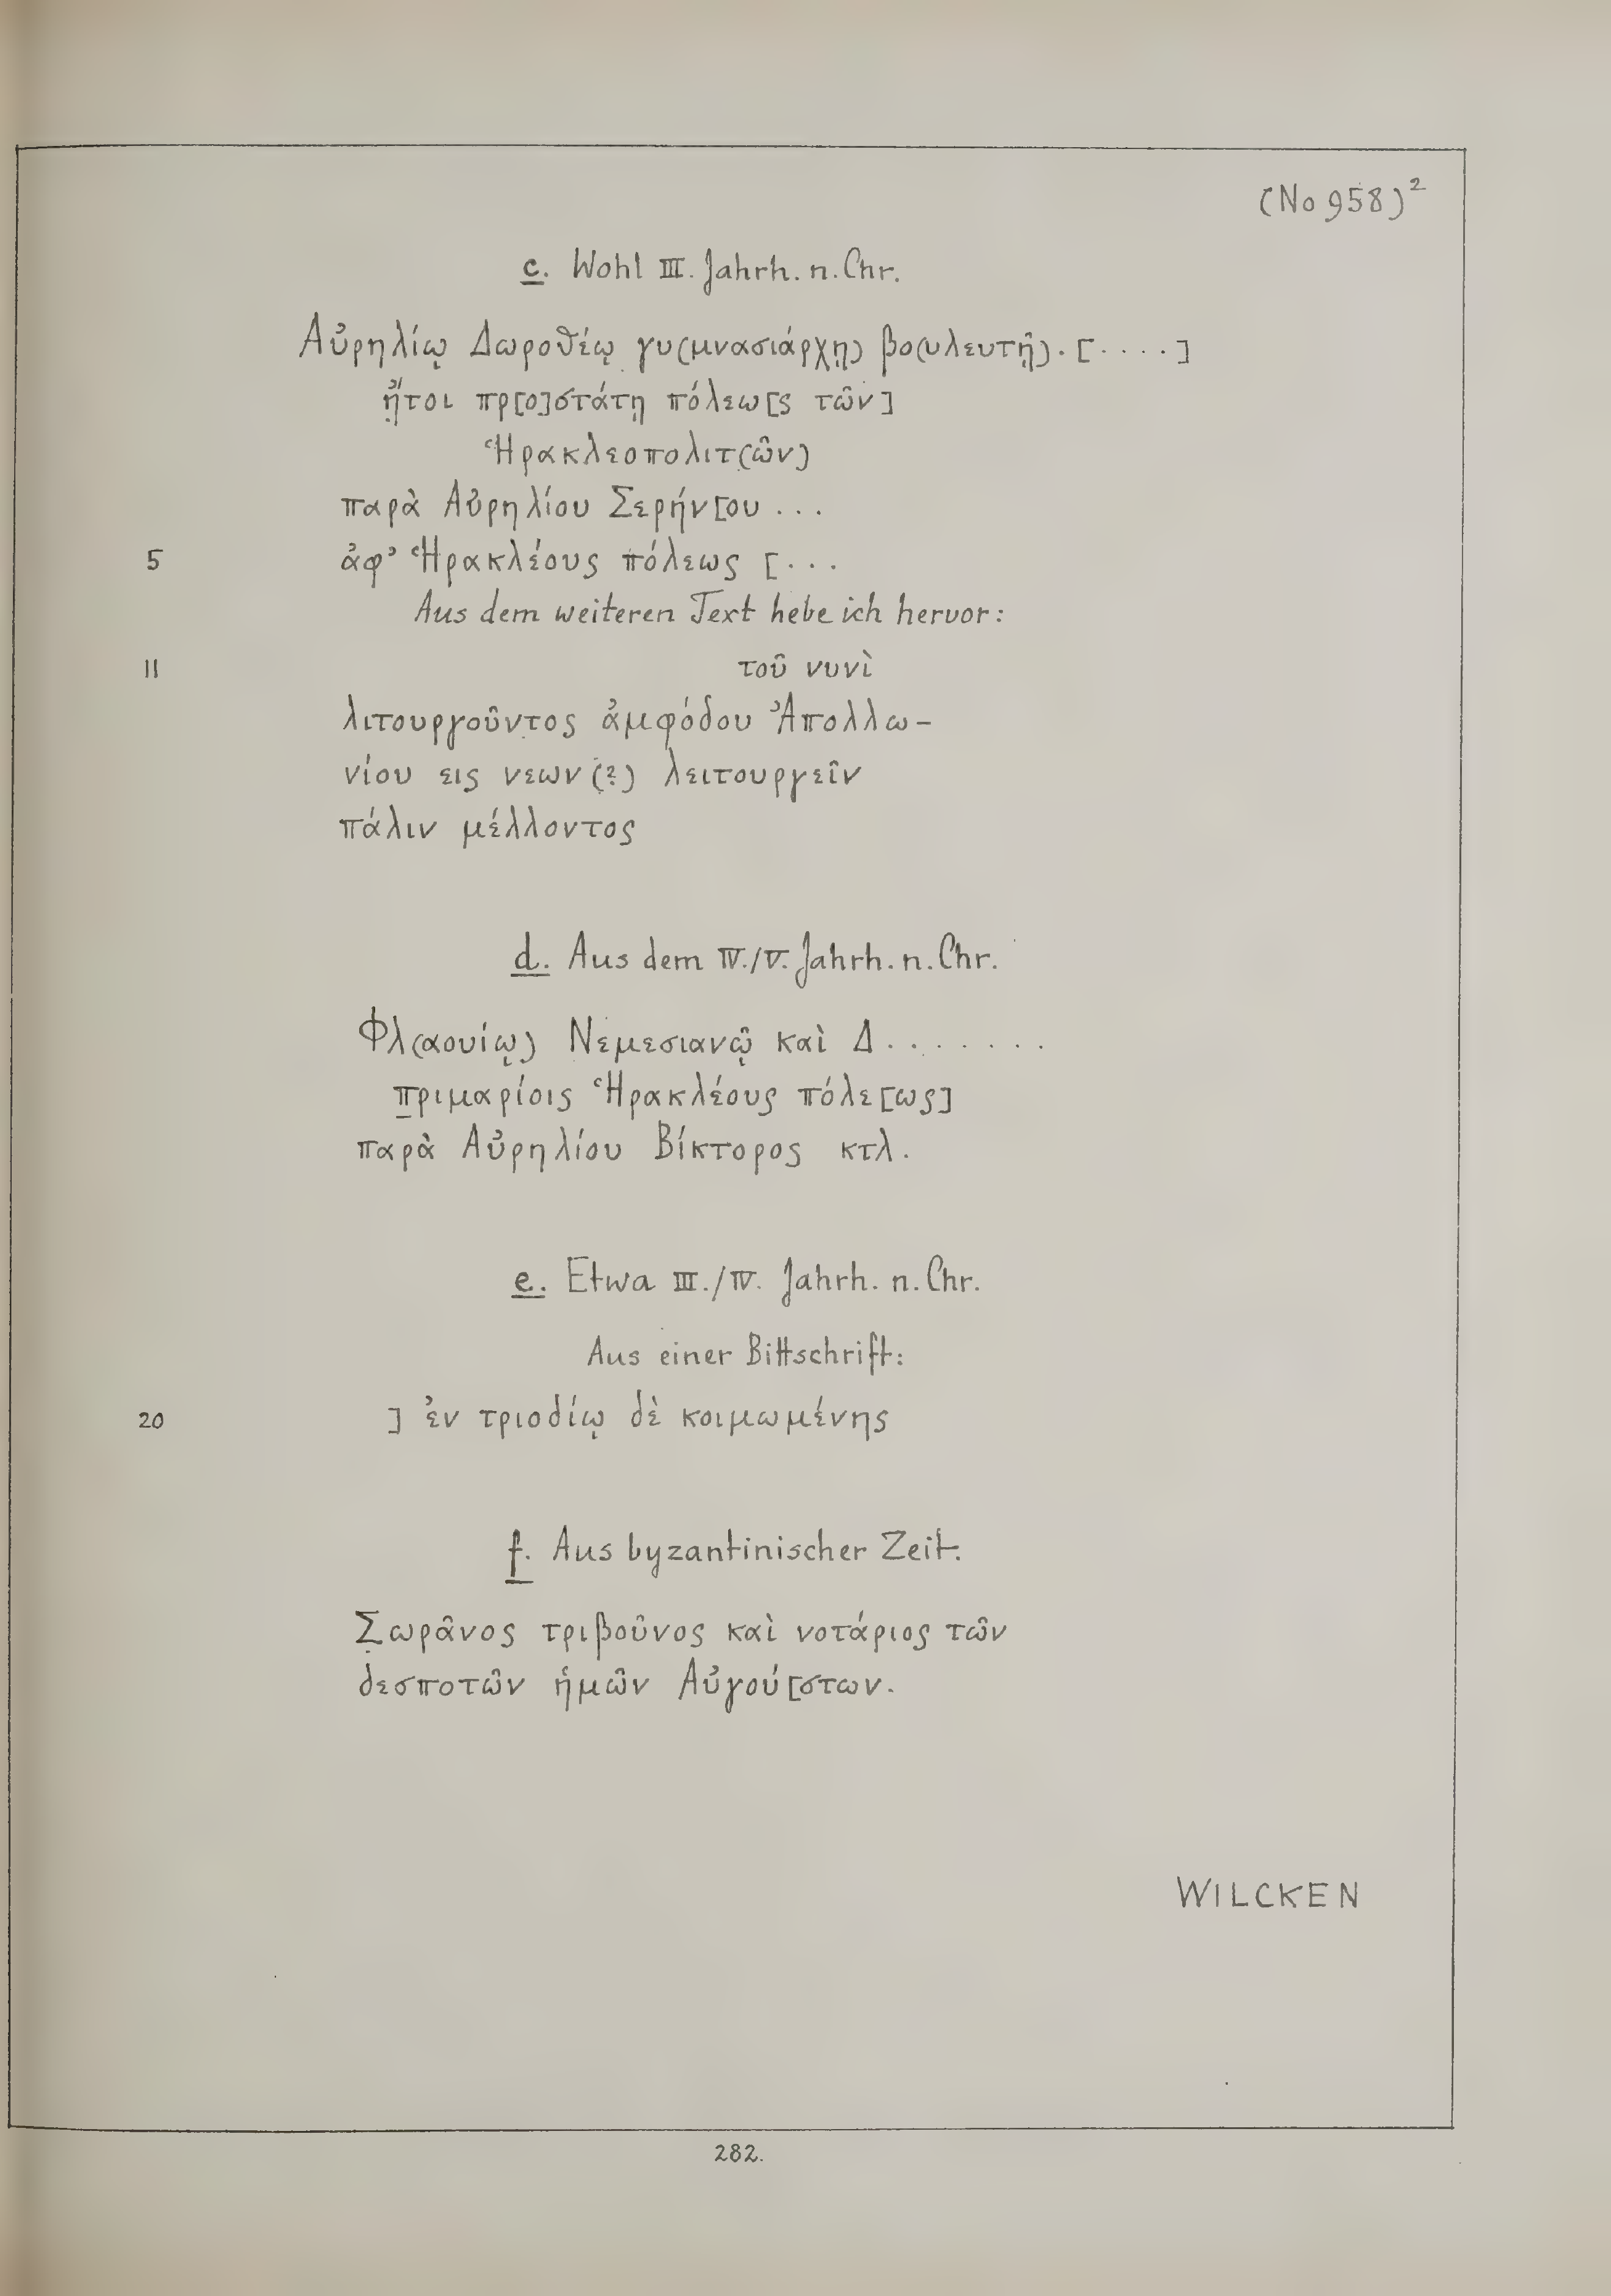 (No 958)²
c. Wohl III. Jahrh. n. Chr.
Αὐρηλίῳ Δωροθέῳ γυ(μνασιάρχῃ) βο(υλευτῇ). [....]
ἤ̣τοι πρ[ο]στάτῃ πόλεω[ς τῶν]
Ἡρακλεοπολιτ(ῶν)
παρὰ Αὐρηλίου Σερήν[ου ...
5 ἀφ᾽ Ἡρακλέους πόλεως [...
Aus dem weiteren Text hebe ich hervor:
11 τοῦ νυνὶ
λιτουργοῦντος ἀμφόδου Ἀπολλω-
νίου εις νεων(?) λειτουργεῖν
πάλιν μέλλοντος
d. Aus dem IV./V. Jahrh. n. Chr.
Φλ(αουίῳ) Νεμεσιανῷ καὶ Δ.......
πριμαρίοις Ἡρακλέους πόλε[ως]
παρὰ Αὐρηλίου Βίκτορος κτλ.
e. Etwa III./IV. Jahrh. n. Chr.
Aus einer Bittschrift:
20 ] ἐν τριοδίῳ δὲ κοιμωμένης
f. Aus byzantinischer Zeit.
Σωρᾶνος τριβοῦνος καὶ νοτάριος τῶν
δεσποτῶν ἡμῶν Αὐγού[στων.
WILCKEN
282.